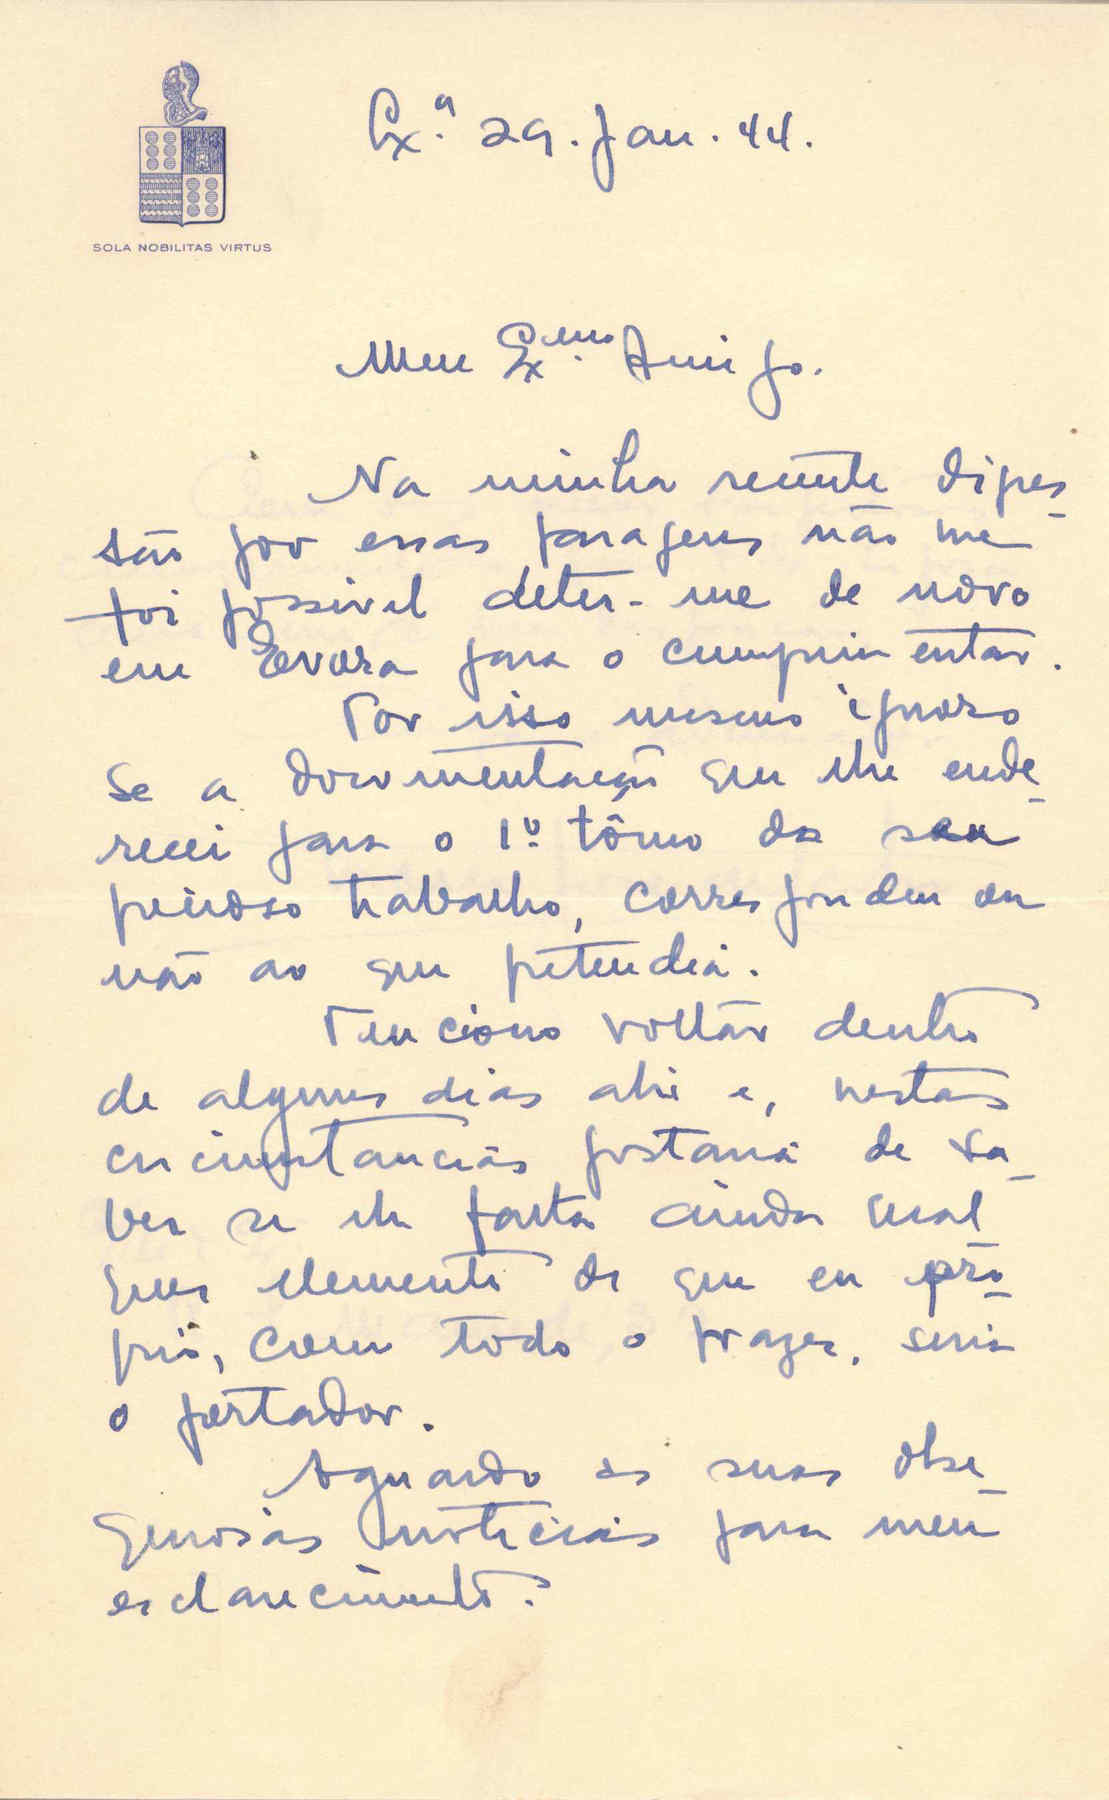 Lx.ª 29. Jan. 44.
SOLA NOBILITAS VIRTUS
Meu Ex.mo Amigo.
Na minha recente digres-
são por essas paragens não me
foi possivel deter-me de novo
em Evora para o cumprimentar.
Por isso mesmo ignoro
se a documentação que lhe ende-
recei para o 1º tômo do seu
precioso trabalho, correspondeu ou
não ao que pretendia.
Tenciono voltar dentro
de algums dias ahi e, nestas
circunstancias gostaria de sa-
ber se lhe falta ainda qual
quer elemento de que eu pró-
prio, com todo o prazer, seria
o portador.
Aguardo as suas obse-
quiosas noticias para meu
esclarecimento.